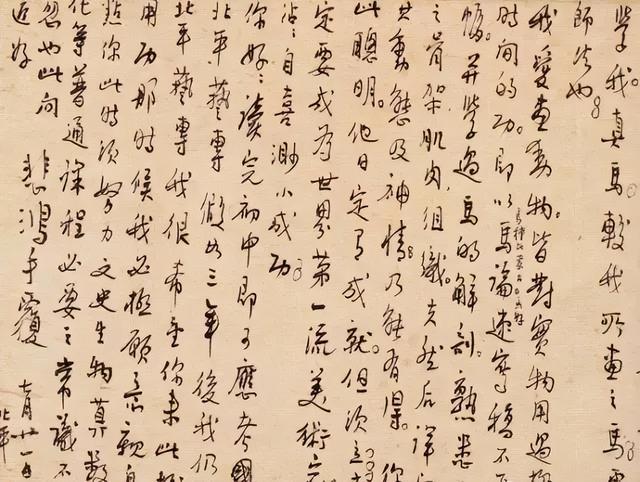 學我。真馬較我所畫之馬更
師法也。
我愛畫動物。皆對實物用過極
時间的功。即以馬論。速寫稿不下
幅。并學過馬的解剖。熟悉
之骨架肌肉組織。夫然后詳
其動態及神情。乃能有得。你
此聰明。他日定有成就。但須立
定要成為世界第一流美術家
沾沾自喜渺小成功。
你好好讀完初中即可應考國
北平藝專 假如三年後我仍
北平藝專 我很希望你来此
用功那時候我必極願意親自
點你此時須努力文史生物算數
化等普通課程必要之常識不
忽也此问
近好
悲鴻手覆
七月廿一日
北平